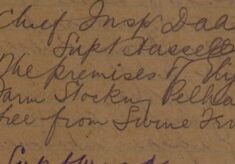 Chief Insp Daa
Supt Tassell
The premises of
Farm Stocking Pelha
free from Swine Fev